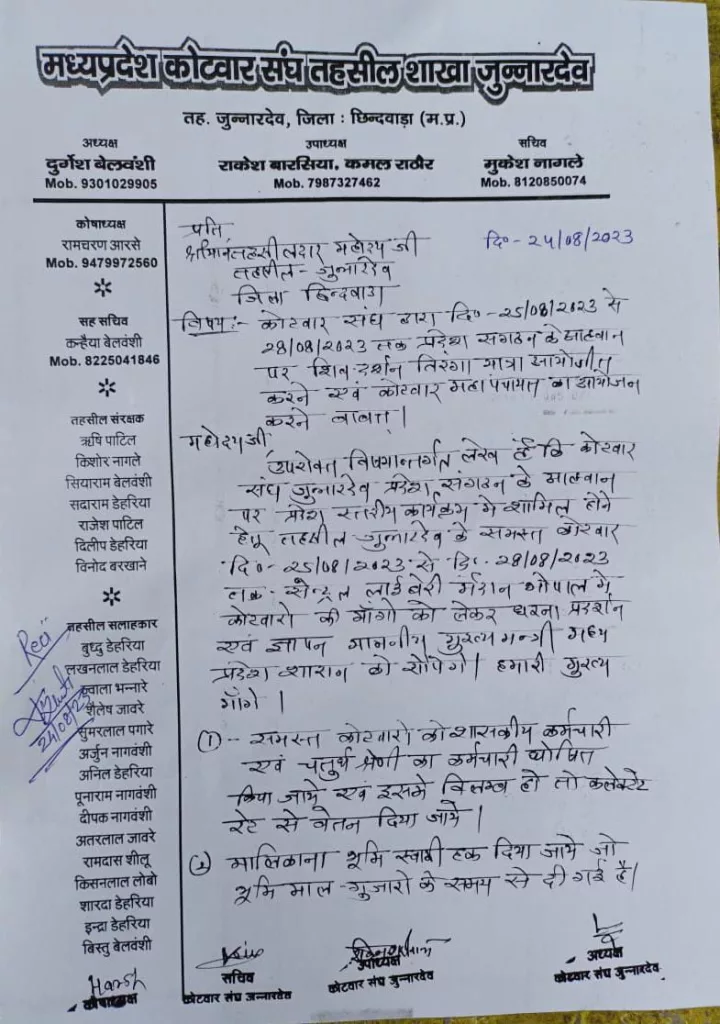 मध्यप्रदेश कोटवार संघ तहसील शाखा जुन्नारदेव
तह. जुन्नारदेव, जिला : छिन्दवाड़ा (म.प्र.)
अध्यक्ष
दुर्गेश बेलवंशी
Mob. 9301029905
उपाध्यक्ष
राकेश बारसिया, कमल राठौर
Mob. 7987327462
सचिव
मुकेश नागले
Mob. 8120850074
कोषाध्यक्ष
रामचरण आरसे
Mob. 9479972560
सह सचिव
कन्हैया बेलवंशी
Mob. 8225041846
तहसील संरक्षक
ऋषि पाटिल
किशोर नागले
सियाराम बेलवंशी
सदाराम डेहरिया
राजेश पाटिल
दिलीप डेहरिया
विनोद बरखाने
तहसील सलाहकार
बुध्दु डेहरिया
लखनलाल डेहरिया
ज्वाला भन्नारे
शैलेष जावरे
सुमरलाल पगारे
अर्जुन नागवंशी
अनिल डेहरिया
पूनाराम नागवंशी
दीपक नागवंशी
अतरलाल जावरे
रामदास शीलू
किसनलाल लोबो
शारदा डेहरिया
इन्द्रा डेहरिया
बिस्तु बेलवंशी
24/08/23
प्रति
श्रीमान तहसीलदार महोदय जी
दि०- 24/08/2023
तहसील- जुन्नारदेव
जिला छिन्दवाड़ा
विषय:- कोटवार संघ द्वारा दि०- 25/08/2023 से
28/08/2023 तक प्रदेश संगठन के आहवान
पर शिव दर्शन तिरंगा यात्रा आयोजीत
करने एवं कोटवार महा पंचायत का आयोजन
करने बाबत्।
महोदय जी
उपरोक्त विषयान्तर्गत लेख है कि कोटवार
संघ जुन्नारदेव प्रदेश संगठन के आहवान
पर प्रदेश स्तरीय कार्यक्रम मे शामिल होने
हेतू तहसील जुन्नारदेव के समस्त कोटवार
दि०- 25/08/2023 से दि.- 28/08/2023
तक- सेन्ट्रल लाईबेरी मैदान भोपाल मे,
कोटवारो की माँगो को लेकर धरना प्रदर्शन
एवं ज्ञापन माननीय मुख्य मन्त्री मध्य
प्रदेश शासन को सौपेगे। हमारी मुख्य
माँगे।
(1) - समस्त कोटवारो को शासकीय कर्मचारी
एवं चतुर्थ श्रेणी का कर्मचारी घोषित
किया जाये एवं इसमे विलम्ब हो तो कलेक्टेर
रेट से वेतन दिया जाये।
(2) मालिकाना भूमि स्वामी हक दिया जाये जो
भूमि माल-गुजारो के समय से दी गई है।
Harsh
कोषाध्यक्ष
सचिव
कोटवार संघ जुन्नारदेव
उपाध्यक्ष
कोटवार संघ जुन्नारदेव
अध्यक्ष
कोटवार संघ जुन्नारदेव